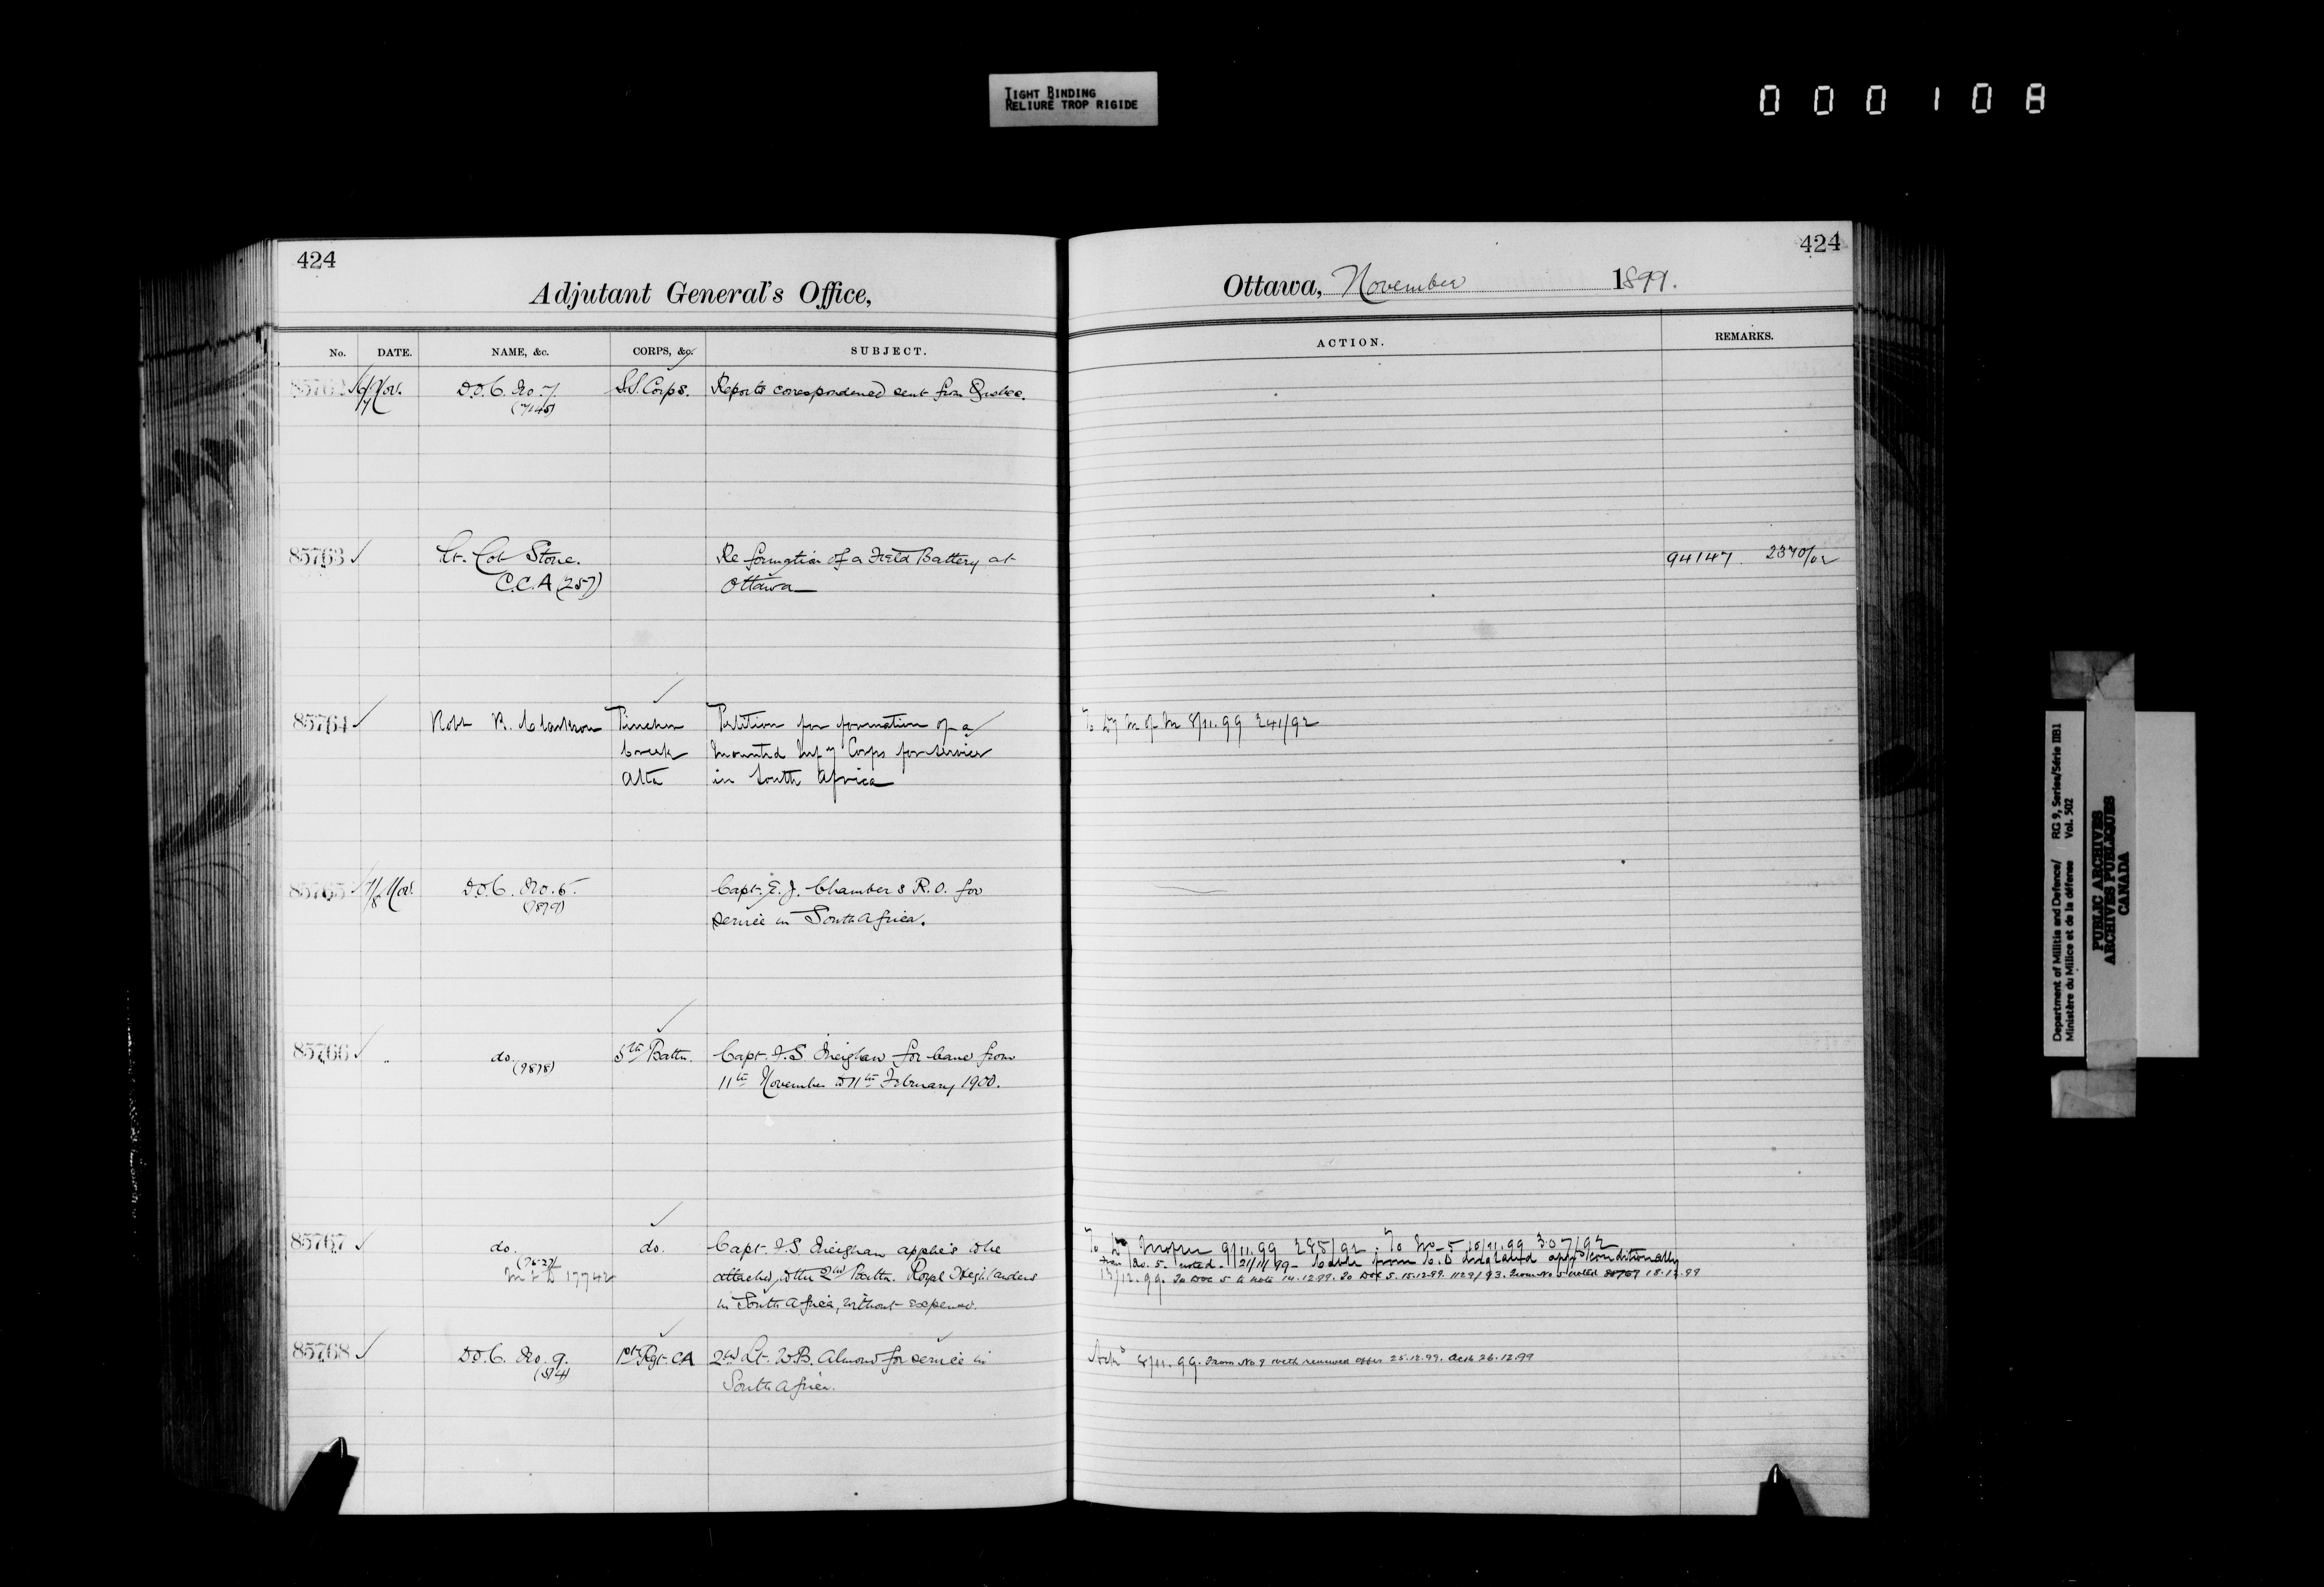 TIGHT BINDING
RELIURE TROP RIGIDE
000108
424
Adjutant General's Office,
No. DATE. NAME, &c. CORPS, &c. SUBJECT.
85762 Nov. D.O.C. No. 7 S.S. Corps. Reports correspondence sent from Quebec.
(7145)
85763 Lt. Col Stone. Re formation of a Field Battery at
C.C.A (257) Ottawa
85764 Robt R. Clarkson Pincher Petition for formation of a
Creek Mounted Infy Corps for service
Alta in South Africa
85765 Nov. D.O.C. No. 5. Capt. E. J. Chambers R.O. for
service in South Africa.
85766 " do. 5th Battn. Capt. F.S. Meighen for leave from
(9878) 11th November to 11th February 1900.
85767 do. do. Capt. F.S. Meighen applies to be
attached to the 2nd Battn. Royal Highlanders
17742
in South Africa, without expense.
85768 D.O.C. No. 9. 1st Regt. CA 2nd Lt. W.B. Almon for service in
South Africa.
424
Ottawa, November 1899.
ACTION. REMARKS.
94147. 2370/02
To Dy M of M 8/11.99 241/92
To Dy M of M 9/11.99 285/92. To No 5 10/11.99 307/92
from No. 5 noted. 21/11/99 Cable from England conditionally
13/12.99. To DOC 5 to note 14.12.99. To DOC 5. 15.12.99. 1129/93. From No 5 noted 18.12.99
8/11.99. From No 9 with renewed offer 25.12.99. Ack 26.12.99
Department of Militia and Defence/ RG 9, Series/Série IIB1
Ministère du Milice et de la défense Vol. 502
PUBLIC ARCHIVES
ARCHIVES PUBLIQUES
CANADA